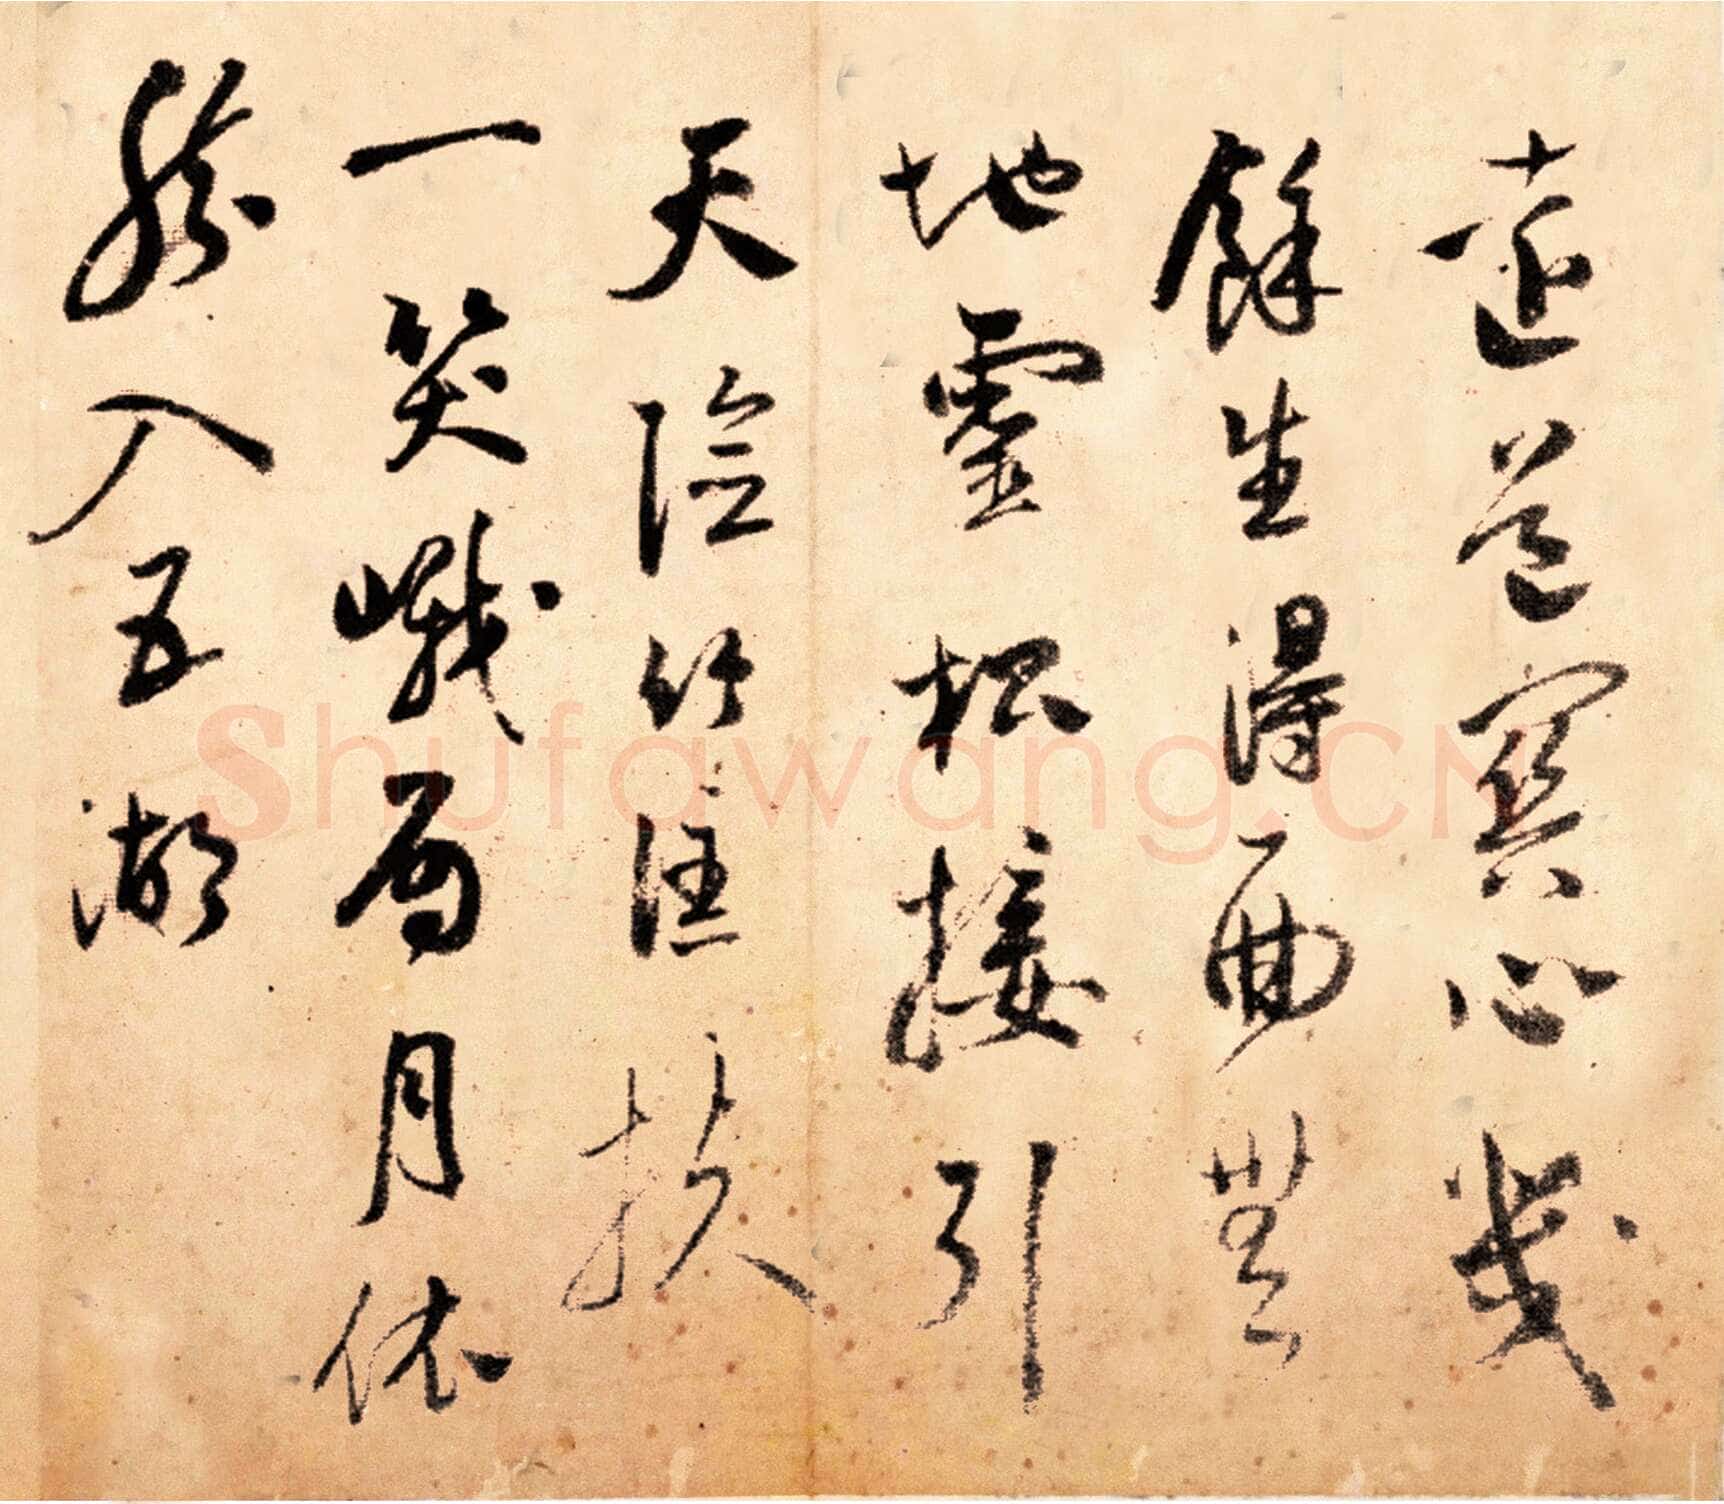 遠道冥心
餘生得面無
地靈接引
天險匡扶
一笑峨眉月依
然入五湖
ShufaWang.CN